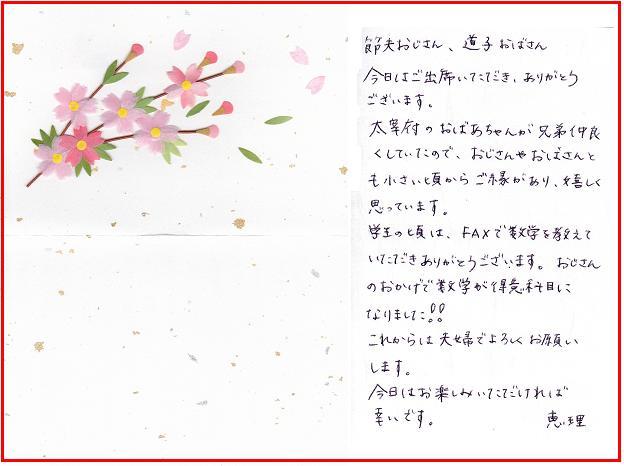 節夫おじさん、道子おばさん
今日はご出席いただき、ありがとう
ございます。
太宰府のおばあちゃんが兄弟仲良
くしていたので、おじさんやおばさんと
も小さい頃からご縁があり、嬉しく
思っています。
学生の頃は、FAXで数学を教えて
いただきありがとうございます。おじさん
のおかげで数学が得意科目に
なりました!!
これからは夫婦でよろしくお願い
します。
今日はお楽しみいただければ
幸いです。 恵理